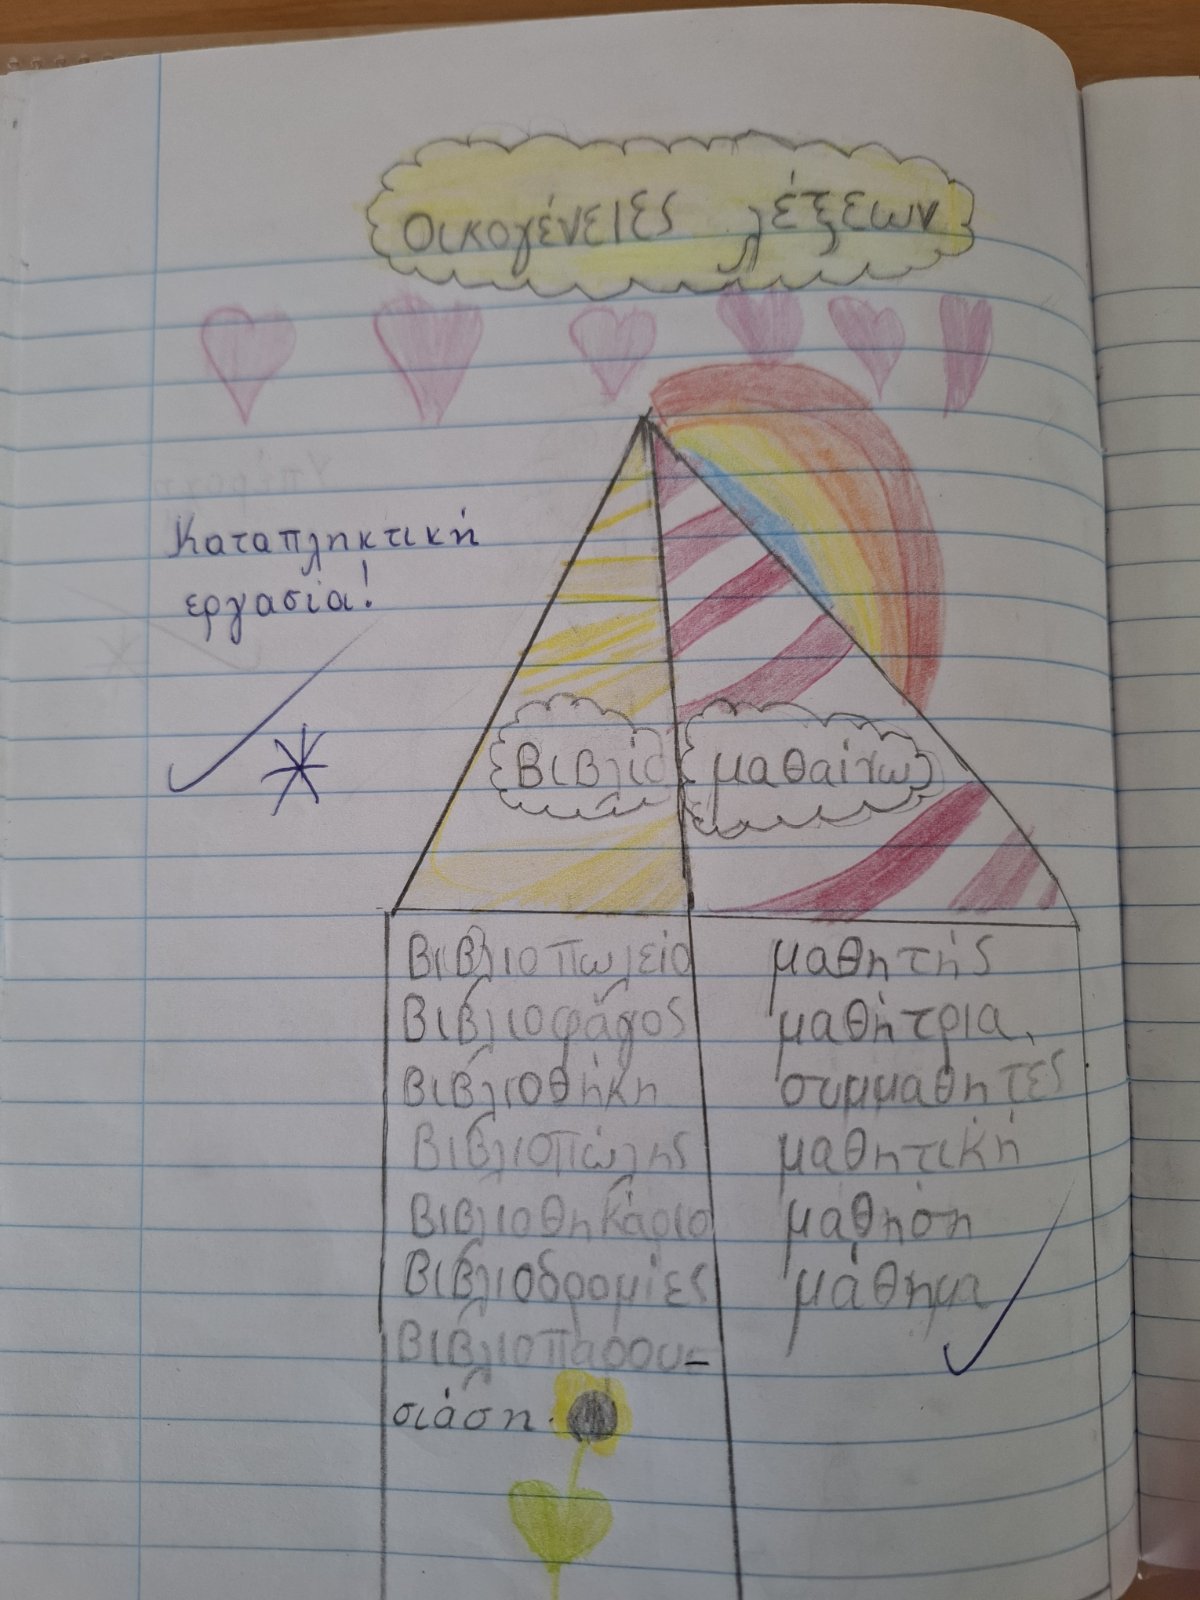 Οικογένειες λέξεων
Καταπληκτική
εργασία!
Βιβλίο
μαθαίνω
Βιβλιοπωλείο
Βιβλιοφάγος
Βιβλιοθήκη
Βιβλιοπώλης
Βιβλιοθηκάριο
Βιβλιοδρομίες
Βιβλιοπαρου-
σιάση.
μαθητής
μαθήτρια,
συμμαθητές
μαθητική
μάθηση
μάθημα